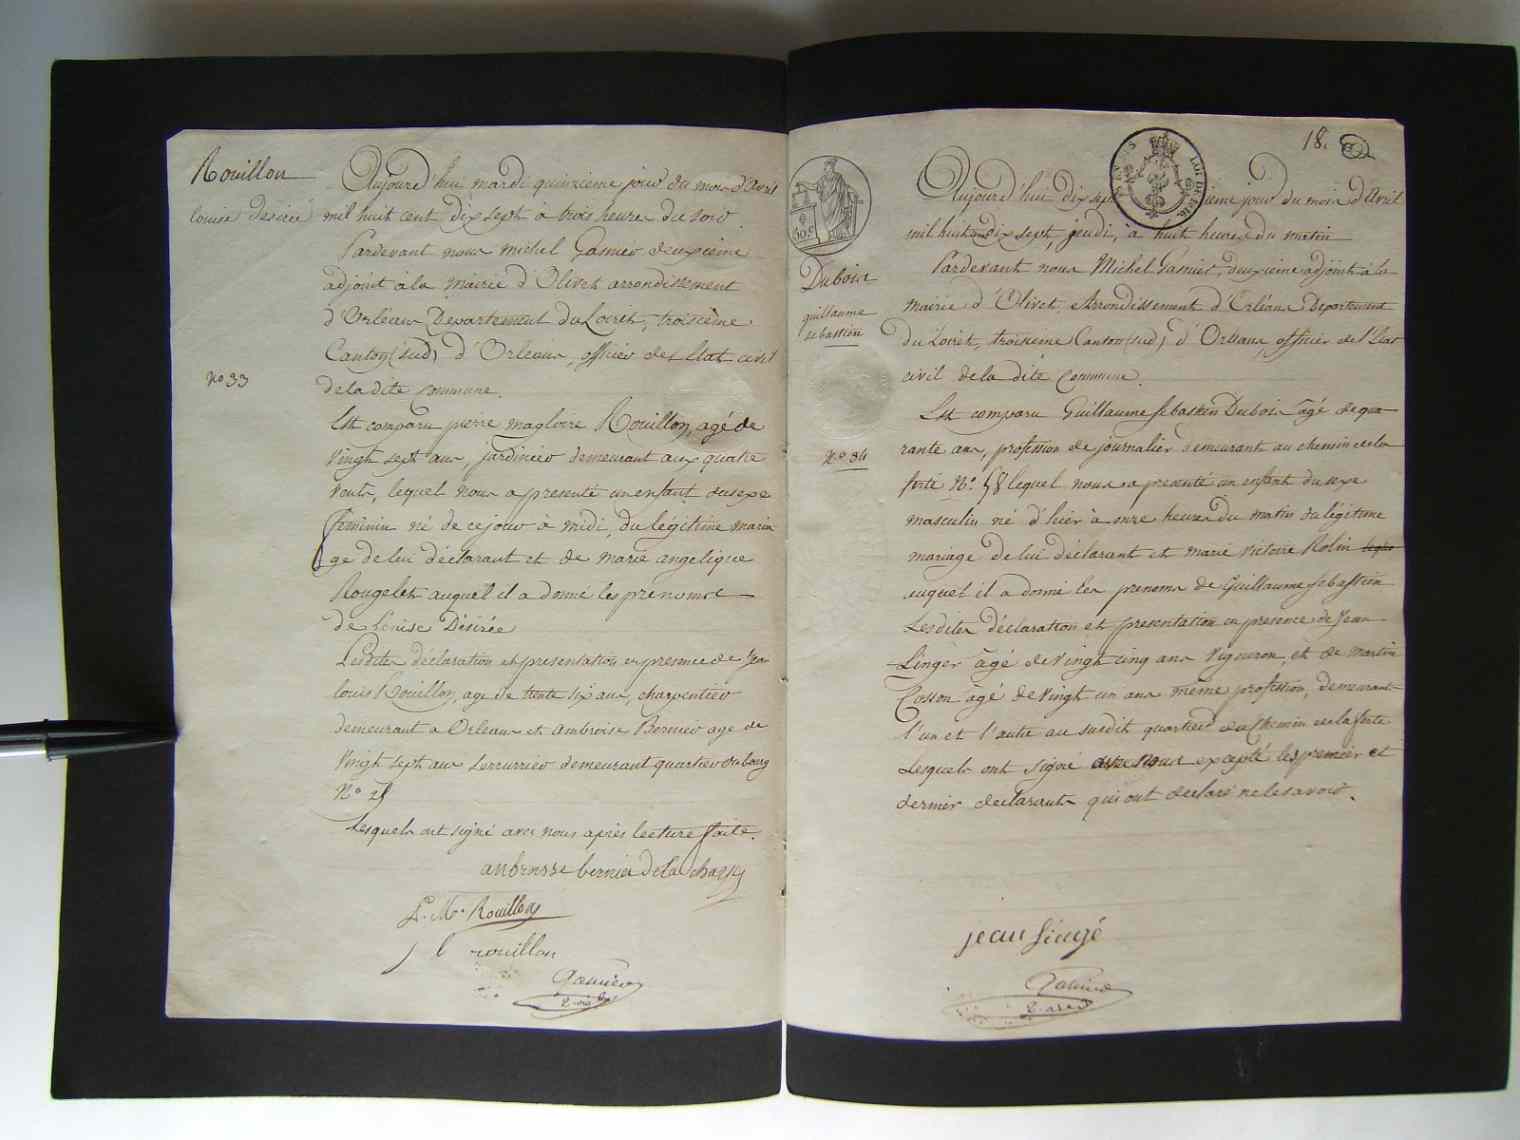 Rouillon
Louise desirée
No 33
Aujourd'hui mardi quinzieme jour du mois d'Avril
mil huit cent dix sept à trois heures du soir
Pardevant nous Michel Garnier deuxieme
adjoint à la mairie d'Olivet arrondissement
d'Orléans Departement du Loiret, troisième
Canton (sud) d'Orleans, officier de l'Etat civil
de la dite Commune.
Est comparu pierre magloire Rouillon, agé de
vingt sept ans, jardinier demeurant aux quatre
vents, lequel nous a presenté un enfant du sexe
feminin né de ce jour à midi, du légitime maria
ge de lui déclarant et de marie angelique
Rougelet auquel il a donné les prenoms
de Louise Désirée
Lesdites déclaration et presentation en presence de Jean
louis Rouillon, age de trente six ans, charpentier
demeurant a Orleans et Ambroise Bernier age de
vingt sept ans serrurrier demeurant quartier du bourg
No 28
Lesquels ont signé avec nous après lecture faite.
bernier
P. M. Rouillon
J l rouillon
Garnier
18.
Dubois
guillaume
sebastien
No 34
Aujourd'hui dix sept ieme jour du mois d'Avril
mil huit dix sept, jeudi, à huit heures du matin
Pardevant nous Michel Garnier, deuxieme adjoint à la
mairie d'Olivet, Arrondissement d'Orléans Departement
du Loiret, troisieme Canton (sud) d'Orleans, officier de l'Etat
civil de la dite Commune.
Est comparu Guillaume Sebastien Dubois agé de qua
rante ans, profession de journalier demeurant au chemin de la
ferté No. 58 lequel nous a presenté un enfant du sexe
masculin né d'hier à onze heures du matin du légitime
mariage de lui déclarant et marie victoire Rolin
auquel il a donné les prenoms de Guillaume Sebastien
Lesdites déclaration et presentation en presence de Jean
Linger agé de vingt cinq ans vigneron, et de martin
Cosson agé de vingt un ans même profession, demeurant
l'un et l'autre au susdit quartier du Chemin de la ferté
Lesquels ont signé avec nous excepté les premier et
dernier declarants qui ont declaré ne le savoir.
jean
Garnier